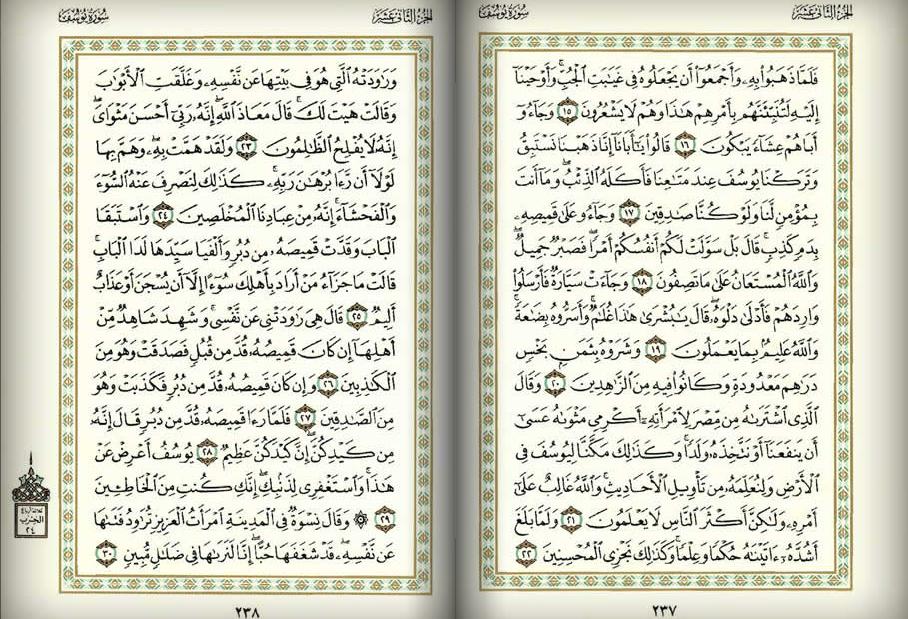 الجزء الثاني عشر
سورة يوسف
فَلَمَّا ذَهَبُوا۟ بِهِۦ وَأَجْمَعُوٓا۟ أَن يَجْعَلُوهُ فِى غَيَٰبَتِ ٱلْجُبِّ ۚ وَأَوْحَيْنَآ
إِلَيْهِ لَتُنَبِّئَنَّهُم بِأَمْرِهِمْ هَٰذَا وَهُمْ لَا يَشْعُرُونَ ١٥ وَجَآءُوٓ
أَبَاهُمْ عِشَآءً يَبْكُونَ ١٦ قَالُوا۟ يَٰٓأَبَانَآ إِنَّا ذَهَبْنَا نَسْتَبِقُ
وَتَرَكْنَا يُوسُفَ عِندَ مَتَٰعِنَا فَأَكَلَهُ ٱلذِّئْبُ ۖ وَمَآ أَنتَ
بِمُؤْمِنٍ لَّنَا وَلَوْ كُنَّا صَٰدِقِينَ ١٧ وَجَآءُو عَلَىٰ قَمِيصِهِۦ
بِدَمٍ كَذِبٍ ۚ قَالَ بَلْ سَوَّلَتْ لَكُمْ أَنفُسُكُمْ أَمْرًا ۖ فَصَبْرٌ جَمِيلٌ ۖ
وَٱللَّهُ ٱلْمُسْتَعَانُ عَلَىٰ مَا تَصِفُونَ ١٨ وَجَآءَتْ سَيَّارَةٌ فَأَرْسَلُوا۟
وَارِدَهُمْ فَأَدْلَىٰ دَلْوَهُۥ ۖ قَالَ يَٰبُشْرَىٰ هَٰذَا غُلَٰمٌ ۚ وَأَسَرُّوهُ بِضَٰعَةً ۚ
وَٱللَّهُ عَلِيمٌۢ بِمَا يَعْمَلُونَ ١٩ وَشَرَوْهُ بِثَمَنٍۭ بَخْسٍ
دَرَٰهِمَ مَعْدُودَةٍ وَكَانُوا۟ فِيهِ مِنَ ٱلزَّٰهِدِينَ ٢٠ وَقَالَ
ٱلَّذِى ٱشْتَرَىٰهُ مِن مِّصْرَ لِٱمْرَأَتِهِۦٓ أَكْرِمِى مَثْوَىٰهُ عَسَىٰٓ
أَن يَنفَعَنَآ أَوْ نَتَّخِذَهُۥ وَلَدًا ۚ وَكَذَٰلِكَ مَكَّنَّا لِيُوسُفَ فِى
ٱلْأَرْضِ وَلِنُعَلِّمَهُۥ مِن تَأْوِيلِ ٱلْأَحَادِيثِ ۚ وَٱللَّهُ غَالِبٌ عَلَىٰٓ
أَمْرِهِۦ وَلَٰكِنَّ أَكْثَرَ ٱلنَّاسِ لَا يَعْلَمُونَ ٢١ وَلَمَّا بَلَغَ
أَشُدَّهُۥٓ ءَاتَيْنَٰهُ حُكْمًا وَعِلْمًا ۚ وَكَذَٰلِكَ نَجْزِى ٱلْمُحْسِنِينَ ٢٢
٢٣٧
الجزء الثاني عشر
سورة يوسف
وَرَٰوَدَتْهُ ٱلَّتِى هُوَ فِى بَيْتِهَا عَن نَّفْسِهِۦ وَغَلَّقَتِ ٱلْأَبْوَٰبَ
وَقَالَتْ هَيْتَ لَكَ ۚ قَالَ مَعَاذَ ٱللَّهِ ۖ إِنَّهُۥ رَبِّىٓ أَحْسَنَ مَثْوَاىَ ۖ
إِنَّهُۥ لَا يُفْلِحُ ٱلظَّٰلِمُونَ ٢٣ وَلَقَدْ هَمَّتْ بِهِۦ ۖ وَهَمَّ بِهَا
لَوْلَآ أَن رَّءَا بُرْهَٰنَ رَبِّهِۦ ۚ كَذَٰلِكَ لِنَصْرِفَ عَنْهُ ٱلسُّوٓءَ
وَٱلْفَحْشَآءَ ۚ إِنَّهُۥ مِنْ عِبَادِنَا ٱلْمُخْلَصِينَ ٢٤ وَٱسْتَبَقَا
ٱلْبَابَ وَقَدَّتْ قَمِيصَهُۥ مِن دُبُرٍ وَأَلْفَيَا سَيِّدَهَا لَدَا ٱلْبَابِ ۚ
قَالَتْ مَا جَزَآءُ مَنْ أَرَادَ بِأَهْلِكَ سُوٓءًا إِلَّآ أَن يُسْجَنَ أَوْ عَذَابٌ
أَلِيمٌ ٢٥ قَالَ هِىَ رَٰوَدَتْنِى عَن نَّفْسِى ۚ وَشَهِدَ شَاهِدٌ مِّنْ
أَهْلِهَآ إِن كَانَ قَمِيصُهُۥ قُدَّ مِن قُبُلٍ فَصَدَقَتْ وَهُوَ مِنَ
ٱلْكَٰذِبِينَ ٢٦ وَإِن كَانَ قَمِيصُهُۥ قُدَّ مِن دُبُرٍ فَكَذَبَتْ وَهُوَ
مِنَ ٱلصَّٰدِقِينَ ٢٧ فَلَمَّا رَءَا قَمِيصَهُۥ قُدَّ مِن دُبُرٍ قَالَ إِنَّهُۥ
مِن كَيْدِكُنَّ ۖ إِنَّ كَيْدَكُنَّ عَظِيمٌ ٢٨ يُوسُفُ أَعْرِضْ عَنْ
هَٰذَا ۚ وَٱسْتَغْفِرِى لِذَنۢبِكِ ۖ إِنَّكِ كُنتِ مِنَ ٱلْخَاطِـِٔينَ
٢٩ ۞ وَقَالَ نِسْوَةٌ فِى ٱلْمَدِينَةِ ٱمْرَأَتُ ٱلْعَزِيزِ تُرَٰوِدُ فَتَىٰهَا
عَن نَّفْسِهِۦ ۖ قَدْ شَغَفَهَا حُبًّا ۖ إِنَّا لَنَرَىٰهَا فِى ضَلَٰلٍ مُّبِينٍ ٣٠
ثلاثة أرباع
الحزب
٢٤
٢٣٨